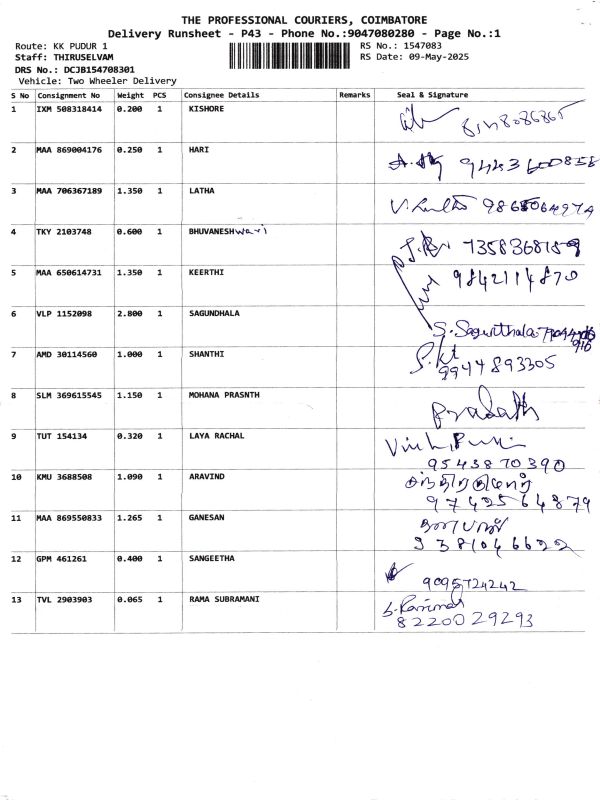 THE PROFESSIONAL COURIERS, COIMBATORE
Delivery Runsheet - P43 - Phone No.:9047080280 - Page No.:1
Route: KK PUDUR 1 RS No.: 1547083
Staff: THIRUSELVAM RS Date: 09-May-2025
DRS No.: DCJB154708301
Vehicle: Two Wheeler Delivery
S No Consignment No Weight PCS Consignee Details Remarks Seal & Signature
1 IXM 508318414 0.200 1 KISHORE
2 MAA 869004176 0.250 1 HARI
3 MAA 706367189 1.350 1 LATHA
4 TKY 2103748 0.600 1 BHUVANESHwari
5 MAA 650614731 1.350 1 KEERTHI 9842114870
6 VLP 1152098 2.800 1 SAGUNDHALA S. Sagunthala
7 AMD 30114560 1.000 1 SHANTHI 9944893305
8 SLM 369615545 1.150 1 MOHANA PRASNTH
9 TUT 154134 0.320 1 LAYA RACHAL
9543870390
10 KMU 3688508 1.090 1 ARAVIND
9742564879
11 MAA 869550833 1.265 1 GANESAN
9381046622
12 GPM 461261 0.400 1 SANGEETHA
9095724242
13 TVL 2903903 0.065 1 RAMA SUBRAMANI
8220029293